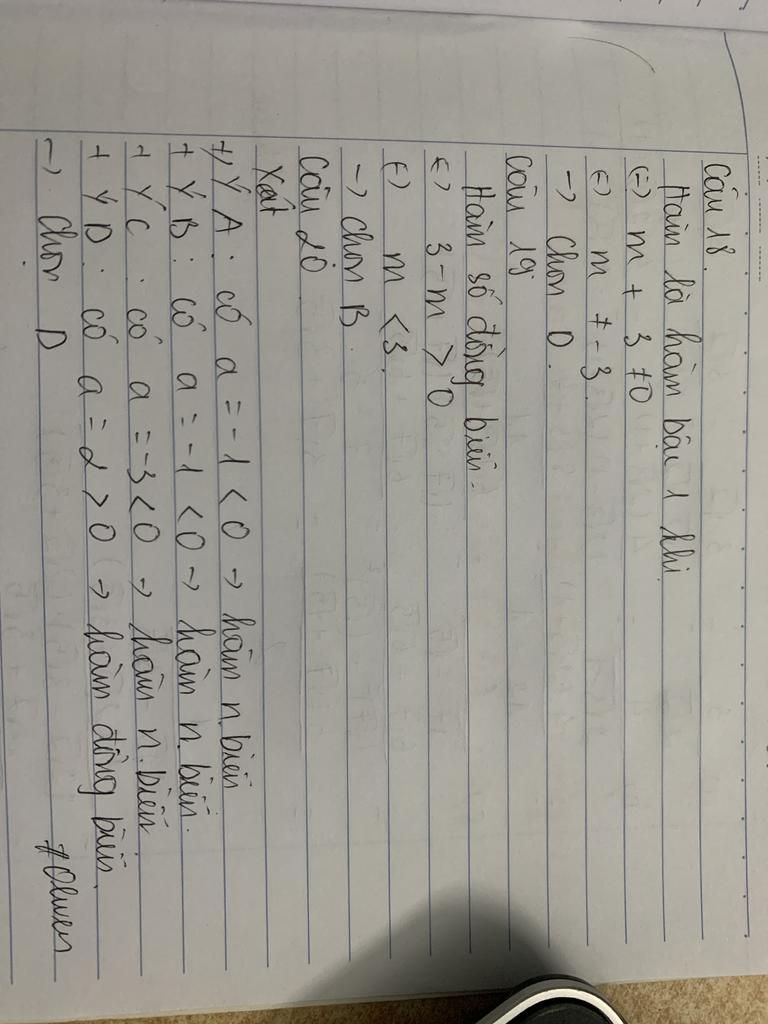 Câu 18.
Hàm là hàm bậc 1 khi
(=) m + 3 ≠0
(=) m ≠ -3
-> Chọn D.
Câu 19
Hàm số đồng biến.
(=) 3-m > 0
(=) m < 3.
-> Chọn B.
Câu 20.
Xét
+, Ý A. có a = -1 < 0 -> hàm n.biến
+ Ý B: có a = -1 < 0 -> hàm n.biến.
+ Ý C. có a = -3 < 0 -> hàm n.biến.
+ Ý D. có a = 2 > 0 -> hàm đồng biến.
-> Chọn D